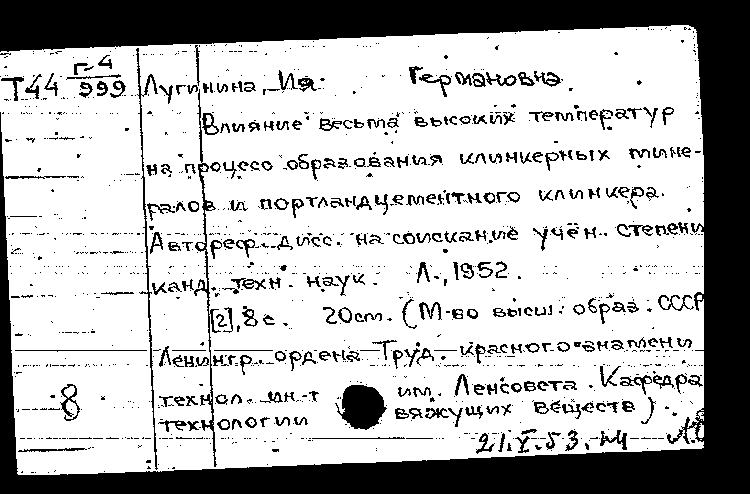 Т44 г-4/999 Лугинина, Ия Германовна.
Влияние весьма высоких температур
на процесс образования клинкерных мине-
ралов и портландцементного клинкера.
Автореф. дисс. на соискание учён. степени
канд. техн. наук. Л., 1952.
[2], 8 с. 20 cm. (М-во высш. образ. СССР
Ленингр. ордена Труд. красного знамени
8 технол. ин-т им. Ленсовета. Кафедра
технологии вяжущих веществ).
21.V.53.